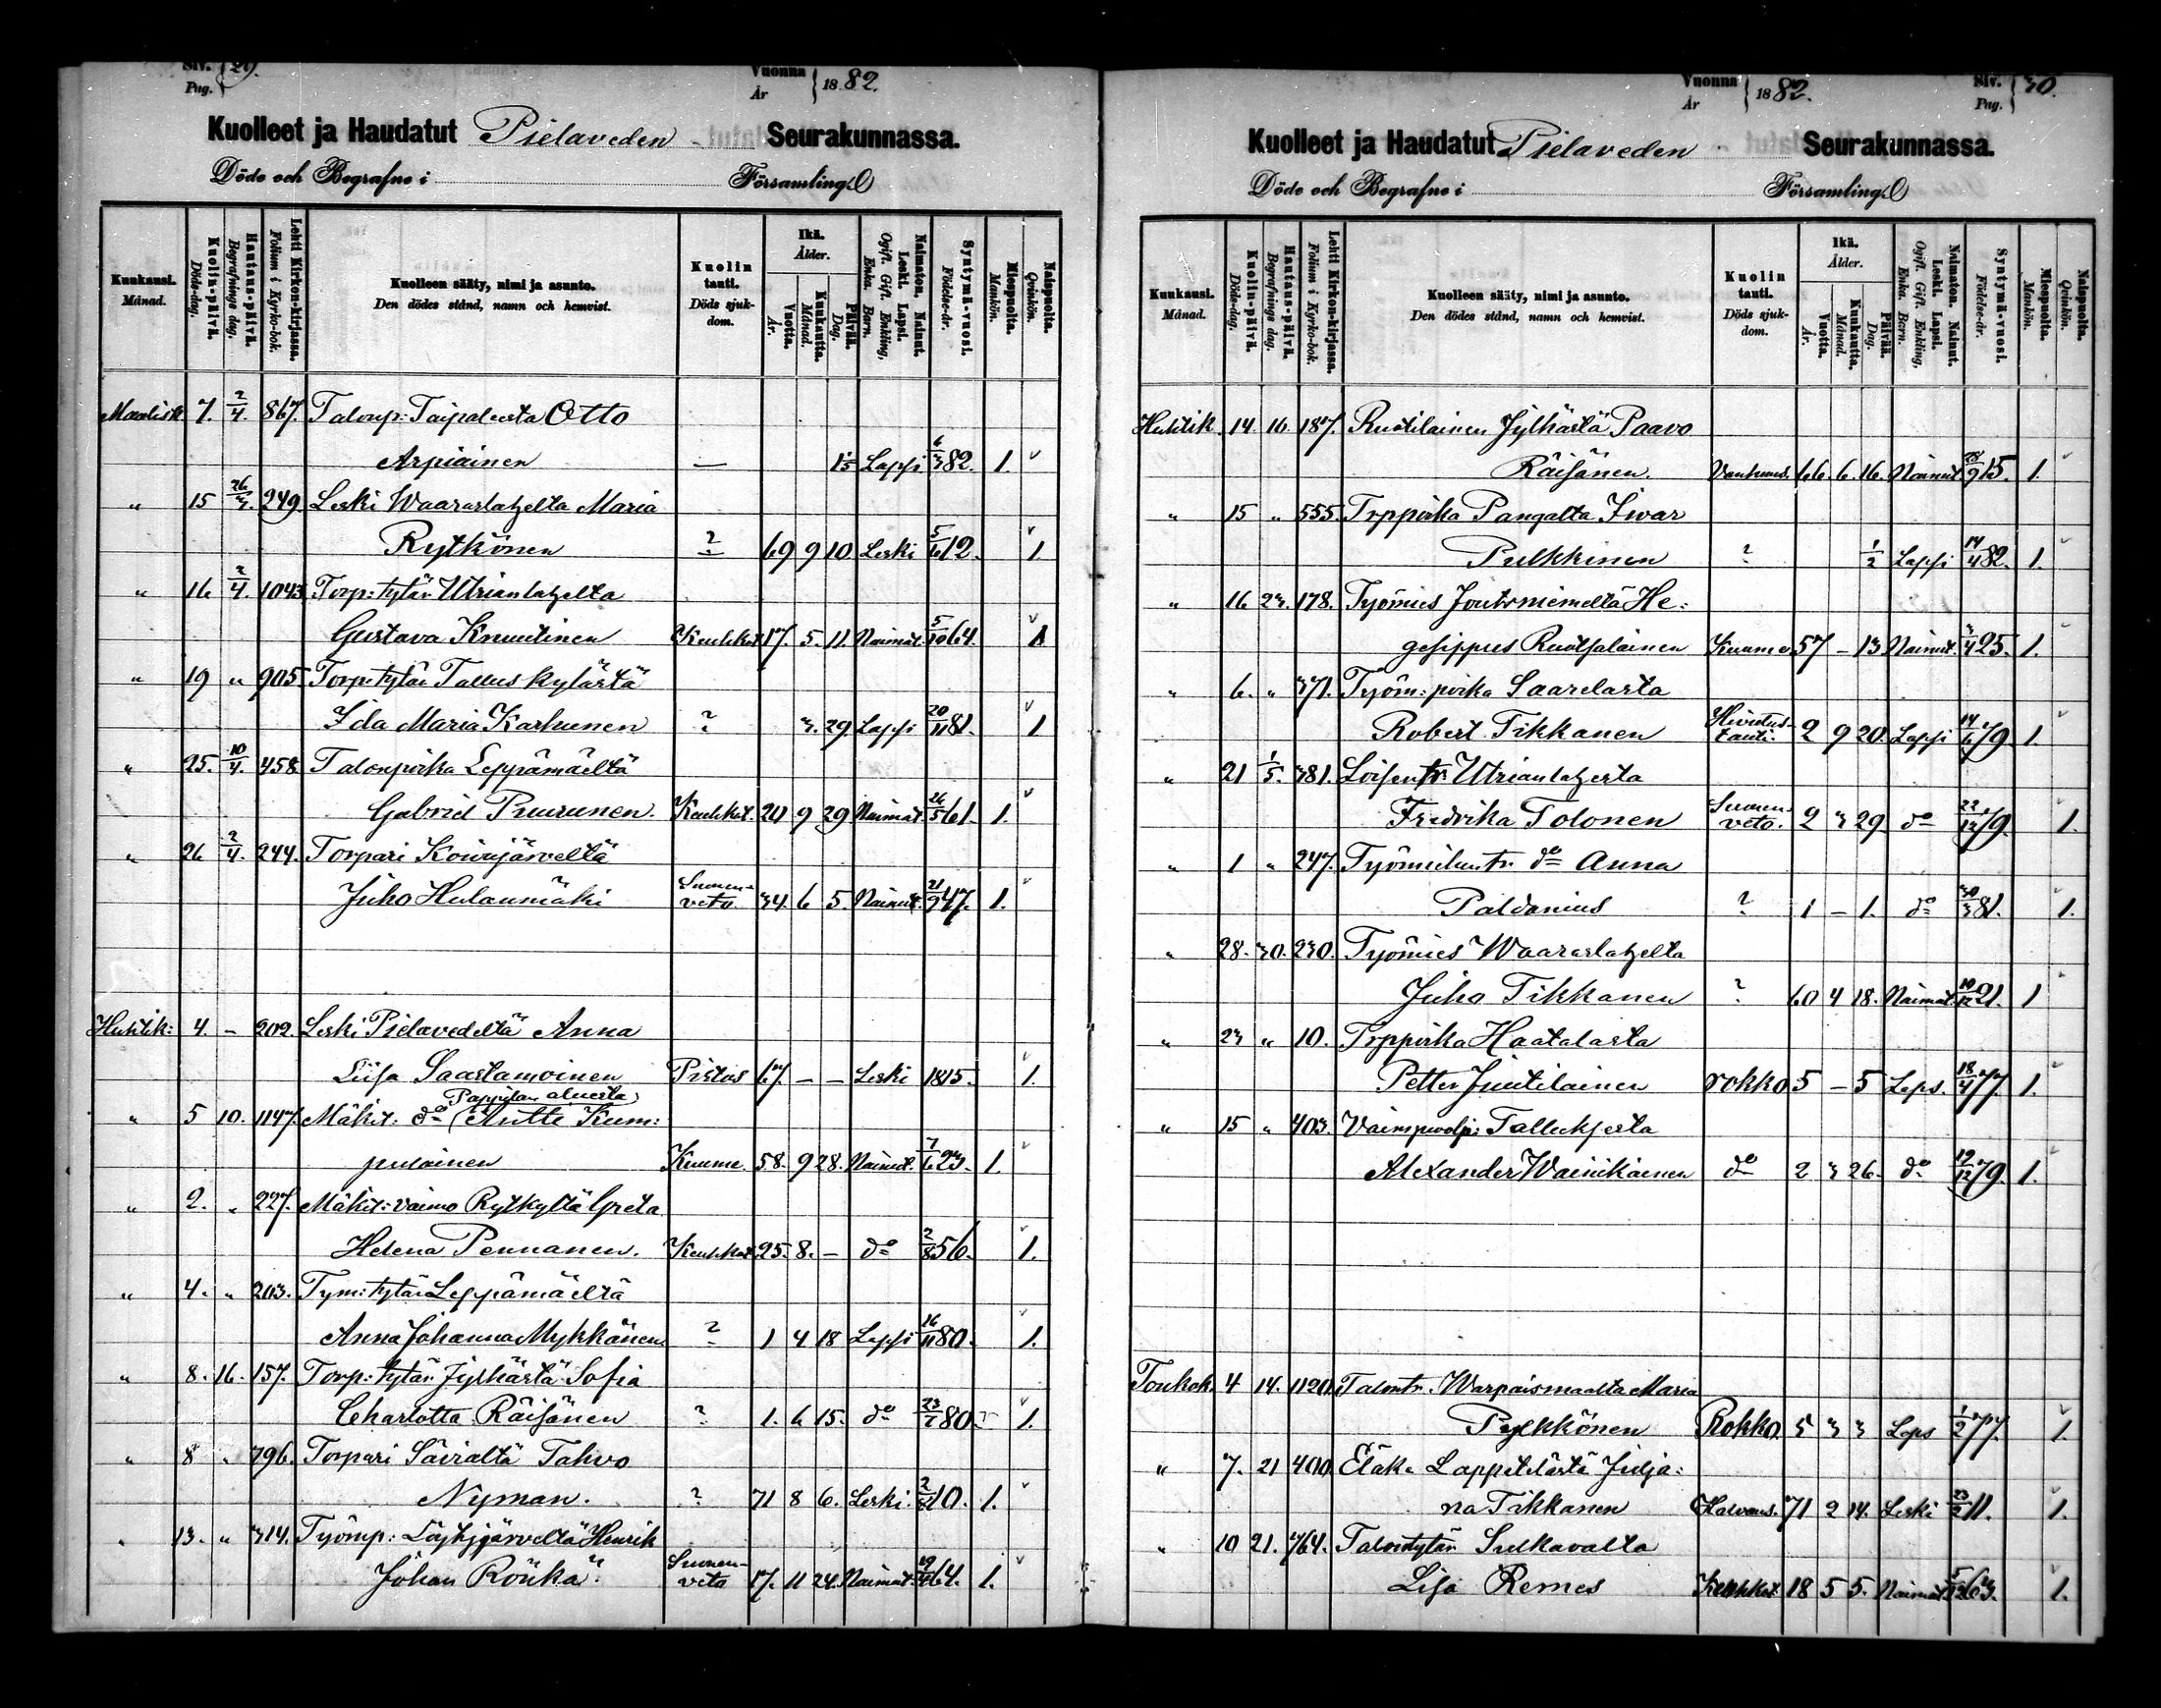 Siv. 29.
Pag.
Vuonna 1882.
År
Kuolleet ja Haudatut Pielaveden Seurakunnassa.
Döde och Begrafne i Församling.
Kuukausi. Månad.
Kuolin-päivä. Döds-dag.
Hautaus-päivä. Begrafnings dag.
Lehti Kirkon-kirjassa. Folium i Kyrko-bok.
Kuolleen sääty, nimi ja asunto.
Den dödes stånd, namn och hemvist.
Kuolin tauti. Döds sjukdom.
Ikä. Ålder.
Vuotta. År.
Kuukautta. Månad.
Päivää. Dag.
Naimaton. Nainut. Leski. Lapsi.
Ogift. Gift. Enkling, Enka. Barn.
Syntymä-vuosi. Födelse-år.
Miespuolta. Mankön.
Naispuolta. Qvinkön.
Maalisk 7. 2/4. 867. Talonp: Taipaleesta Otto
Arpiainen — Lapsi 6/3 82. 1.
" 15 26/3. 249. Leski Waaraslahzelta Maria
Rytkönen ? 69 9 10. Leski 5/6 12. 1.
" 16 2/4. 1043. Torp: tytär Utrianlahzelta
Gustava Knuutinen Keuhkot. 17. 5. 11. Naimat. 5/10 64. 1
" 19 " 905. Torp: tytär Tallus kylästä
Ida Maria Karhunen ? 3. 29 Lapsi 20/11 81. 1
" 25. 10/4. 458. Talonpoika Leppämäeltä
Gabriel Puurunen. Keuhkot. 20 9 29 Naimat 26/5 61. 1.
" 26 2/4. 244. Torpari Koivujärveltä
Juho Hulanmäki Suonenveto. 34. 6 5. Nainut. 21/9 47. 1.
Huhtik: 4. – 202. Leski Pielavedeltä Anna
Liisa Saastamoinen Pistos 67. – – Leski 1815. 1.
Pappilan alueesta
" 5 10. 1147. Mäkit: do (Antti Kum:
pulainen Kuume. 58. 9 28. Nainut. 7/6 23. 1.
" 2. " 227. Mäkit: vaimo Rytkyltä Greta
Helena Pennanen. Keuhkot. 25. 8. – do 2/8 56. 1.
" 4. " 203. Tym: tytär Leppämäeltä
Anna Johanna Mykkänen ? 1 4 18 Lapsi 16/11 80. 1.
" 8. 16. 157. Torp: tytär Jylhästä Sofia
Charlotta Räisänen ? 1. 6 15. do 23/7 80. 1.
" 8 " 796. Torpari Säviältä Tahvo
Nyman. ? 71 8 6. Leski. 2/8 10. 1.
" 13. " 314. Työmp: Löytyjärveltä Henrik
Johan Rönkä. Suonenveto 17. 11 24. Naimat. 19/4 64. 1.
Vuonna 1882.
År
Siv. 30.
Pag.
Kuolleet ja Haudatut Pielaveden Seurakunnassa.
Döde och Begrafne i Församling.
Kuukausi. Månad.
Kuolin-päivä. Döds-dag.
Hautaus-päivä. Begrafnings dag.
Lehti Kirkon-kirjassa. Folium i Kyrko-bok.
Kuolleen sääty, nimi ja asunto.
Den dödes stånd, namn och hemvist.
Kuolin tauti. Döds sjukdom.
Ikä. Ålder.
Vuotta. År.
Kuukautta. Månad.
Päivää. Dag.
Naimaton. Nainut. Leski. Lapsi.
Ogift. Gift. Enkling, Enka. Barn.
Syntymä-vuosi. Födelse-år.
Miespuolta. Mankön.
Naispuolta. Qvinkön.
Huhtik. 14. 16. 187. Ruotilainen Jylhästä Paavo
Räisänen. Vanhuus. 66. 6. 16. Nainut. 9 15. 1.
" 15 " 555. Trppoika Pangalta Iwar
Pulkkinen ? 1/2 Lapsi 14/4 82. 1.
" 16 23. 178. Työmies Joutsniemeltä He:
gesippus Ruotsalainen Kuume 57 – 13 Nainut. 3/4 25. 1.
" 6. " 371. Työm: poika Saarelasta
Robert Tikkanen Hivutus-tauti. 2 9 20. Lapsi 14/6 79. 1.
" 21 1/5. 381. Loisentr. Utrianlahzesta
Fredrika Tolonen Suonenveto. 2 3 29 do 22/12 79. 1.
" 1 " 247. Työmiehentr. do Anna
Paldanius ? 1 – 1. do 30/3 81. 1.
" 28. 30. 230. Työmies Waaraslahzelta
Juho Tikkanen ? 60 4 18. Naimat. 10/12 21. 1
" 23 " 10. Trppoika Haatalasta
Petter Juutilainen rokko 5 – 5 Laps. 18/4 77. 1.
" 15 " 403. Vaimpuolp: Tallukzesta
Alexander Wainikainen do 2 3 26. do 19/12 79. 1.
Toukok. 4 14. 1120. Talontr. Warpaismaalta Maria
Pylkkönen Rokko. 5 3 3 Laps 1/2 77. 1.
" 7. 21 400. Eläk. Lappetelästä Julja:
na Tikkanen Halvaus. 71 2 14. Leski 23/2 11. 1.
" 10 21. 764. Talontytär Sulkavalta
Lisa Remes Keuhkot 18 5 5. Naimat. 5/12 63. 1.